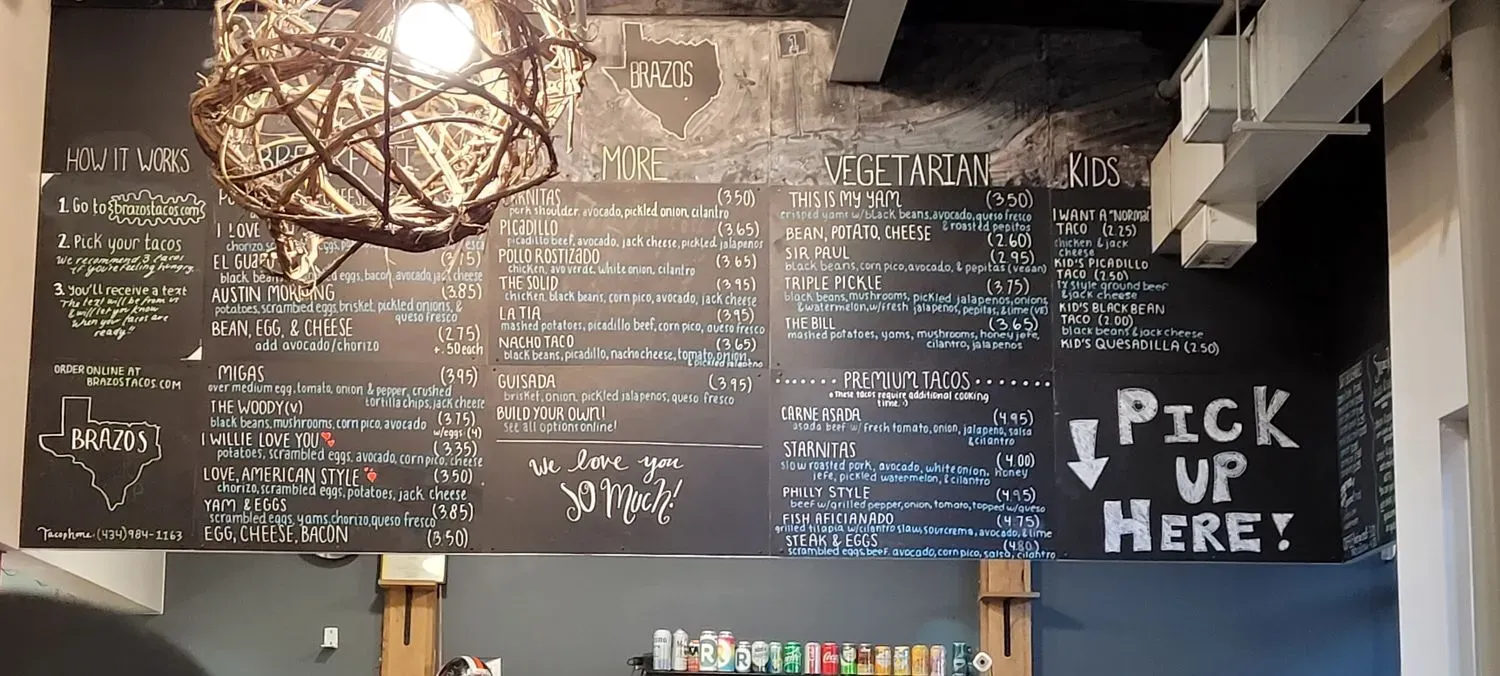 BRAZOS
HOW IT WORKS
1. Go to brazostacos.com
2. Pick your tacos
We recommend 3 tacos
if you're feeling hungry.
3. You'll receive a text
The text will be from us
& will let you know
when your tacos are
ready!!
ORDER ONLINE AT
BRAZOSTACOS.COM
BRAZOS
Tacophone: (434) 984-1163
I LOVE
EL GUA
black bean eggs, bacon, avocado, jack cheese
AUSTIN MORNING (3.85)
potatoes, scrambled eggs, brisket, pickled onions, &
queso fresco
BEAN, EGG, & CHEESE (2.75)
add avocado/chorizo +.50 each
MIGAS (3.95)
over medium egg, tomato, onion & pepper, crushed
tortilla chips, jack cheese
THE WOODY (v) (3.75)
black beans, mushrooms, corn pico, avocado w/eggs (4)
I WILLIE LOVE YOU (3.35)
potatoes, scrambled eggs, avocado, corn pico, cheese
LOVE, AMERICAN STYLE (3.50)
chorizo, scrambled eggs, potatoes, jack cheese
YAM & EGGS (3.85)
scrambled eggs, yams, chorizo, queso fresco
EGG, CHEESE, BACON (3.50)
MORE
RNITAS (3.50)
pork shoulder, avocado, pickled onion, cilantro
PICADILLO (3.65)
picadillo beef, avocado, jack cheese, pickled jalapenos
POLLO ROSTIZADO (3.65)
chicken, avo verde, white onion, cilantro
THE SOLID (3.95)
chicken, black beans, corn pico, avocado, jack cheese
LA TIA (3.95)
mashed potatoes, picadillo beef, corn pico, queso fresco
NACHO TACO (3.65)
black beans, picadillo, nacho cheese, tomato, onion,
& pickled jalapeno
GUISADA (3.95)
brisket, onion, pickled jalapenos, queso fresco
BUILD YOUR OWN!
See all options online!
We love you
SO Much!
VEGETARIAN
THIS IS MY YAM (3.50)
crisped yams w/black beans, avocado, queso fresco
& roasted pepitos
BEAN, POTATO, CHEESE (2.60)
SIR PAUL (2.95)
black beans, corn pico, avocado, & pepitas (vegan)
TRIPLE PICKLE (3.75)
black beans, mushrooms, pickled jalapenos, onions,
& watermelon, w/fresh jalapenos, pepitas, & lime (v)
THE BILL (3.65)
mashed potatoes, yams, mushrooms, honey jefe,
cilantro, jalapenos
PREMIUM TACOS
*These tacos require additional cooking
time. :)
CARNE ASADA (4.95)
asada beef w/ fresh tomato, onion, jalapeno, salsa
& cilantro
STARNITAS (4.00)
slow roasted pork, avocado, white onion, honey
jefe, pickled watermelon, & cilantro
PHILLY STYLE (4.95)
beef w/grilled pepper, onion, tomato, topped w/queso
FISH AFICIANADO (4.75)
grilled tilapia w/cilantro slaw, sour crema, avocado, & lime
STEAK & EGGS (4.80)
scrambled eggs, beef, avocado, corn pico, salsa, cilantro
KIDS
I WANT A "NORMAL
TACO (2.25)
chicken & jack
cheese
KID'S PICADILLO
TACO (2.50)
TX style ground beef
& jack cheese
KID'S BLACK BEAN
TACO (2.00)
black beans & jack cheese
KID'S QUESADILLA (2.50)
PICK
UP
HERE!